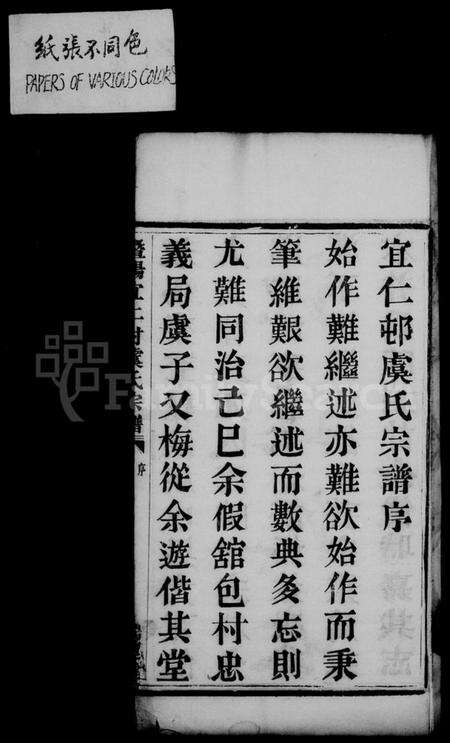 紙張不同色
PAPERS OF VARIOUS COLORS
宜仁邨虞氏宗譜序
始作難繼述亦難欲始作而秉
筆維艱欲繼述而數典多忘則
尤難同治己巳余假舘包村忠
義局虞子又梅從余遊偕其堂
暨陽宜仁村虞氏宗譜
序
FamilySearch